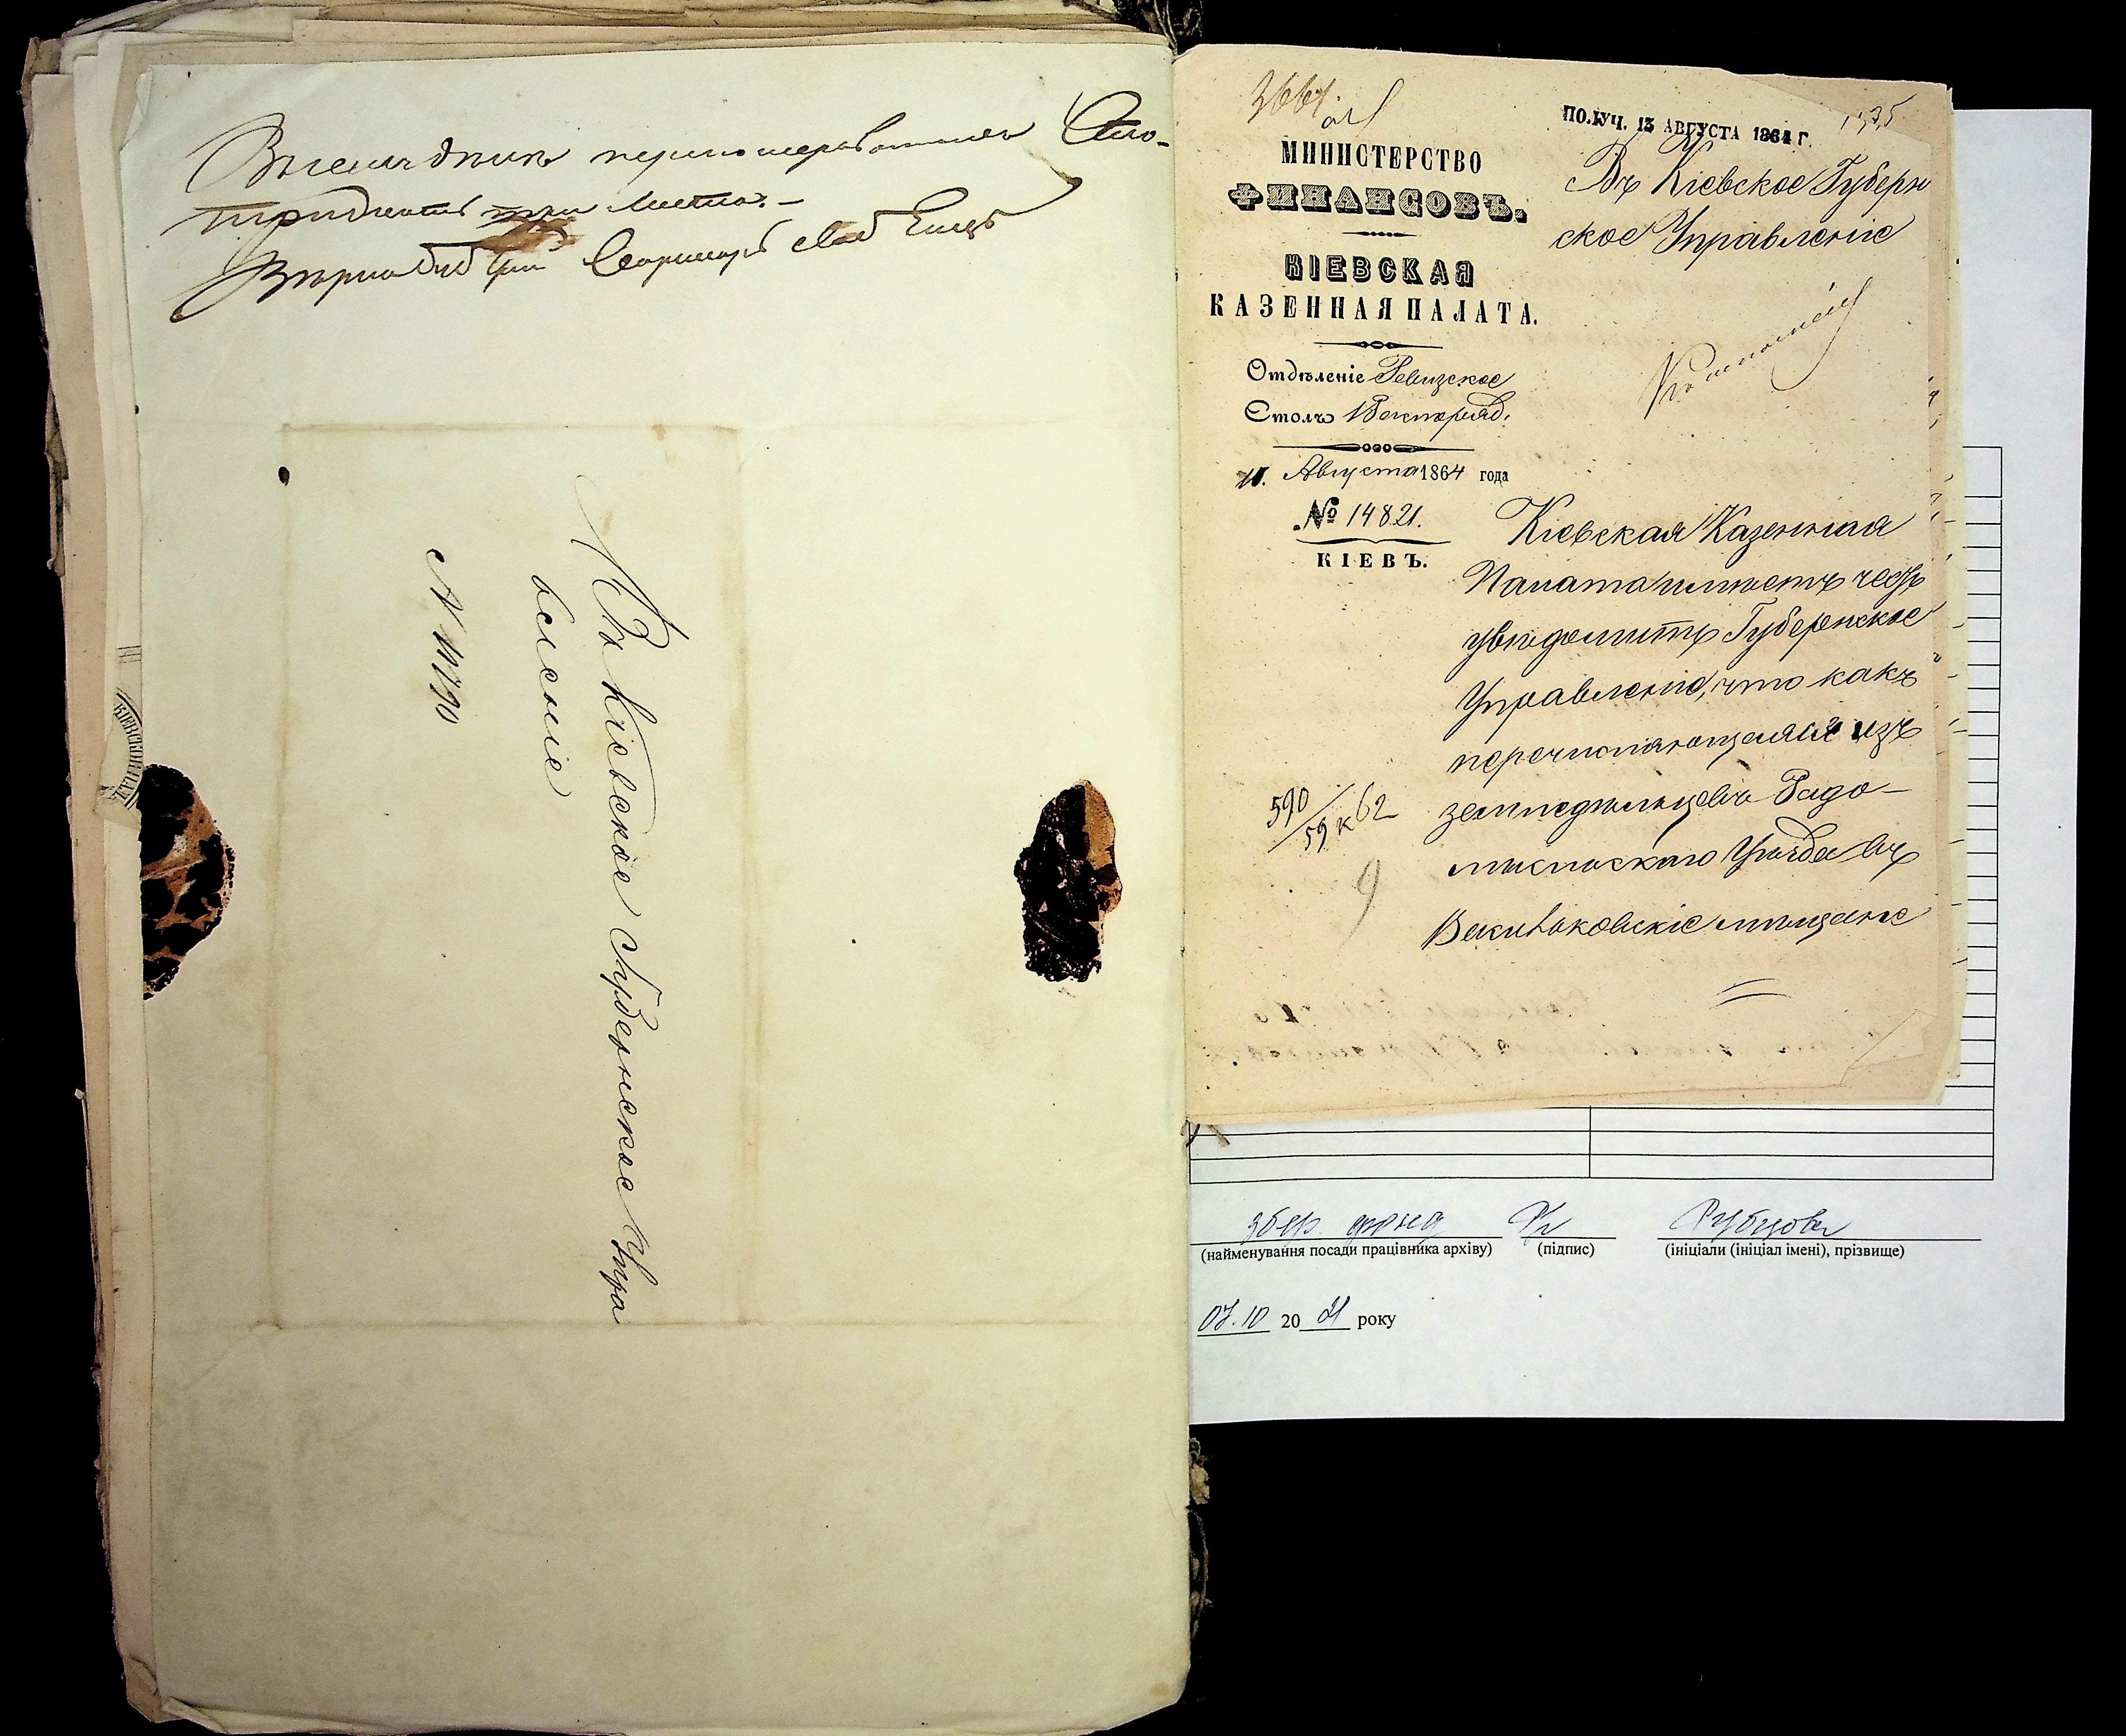 пронумерованныхъ Сто-
тридцать три листа. –
Въ Кіевское Губернское Упра
вленіе
3664.
МИНИСТЕРСТВО
ФИНАНСОВЪ.
КІЕВСКАЯ
КАЗЕННАЯ ПАЛАТА.
Отдѣленіе Ревизское
Столъ
Августа 1864 года
№ 14821.
КІЕВЪ.
590/59 к 62
9
ПОЛУЧ. 13 АВГУСТА 1864 Г.
135
Въ Кіевское Губерн
ское Управленіе
Кіевская Казенная
Палата имѣетъ честь
увѣдомить Губернское
Управленіе, что какъ
перечисляющіяся изъ
земледѣльцевъ Радо-
мысльскаго Уѣзда въ
Васильковскіе мѣщане
КІЕВСКОЙ ПАЛ
збер. фонд
Рубцова
(найменування посади працівника архіву) (підпис) (ініціали (ініціал імені), прізвище)
07.10 2021 року